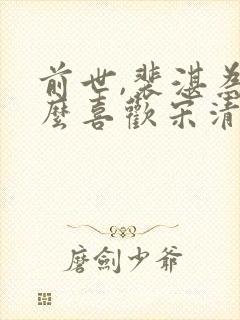 前世,裴湛為
麼喜歡宋清
磨劍少爺